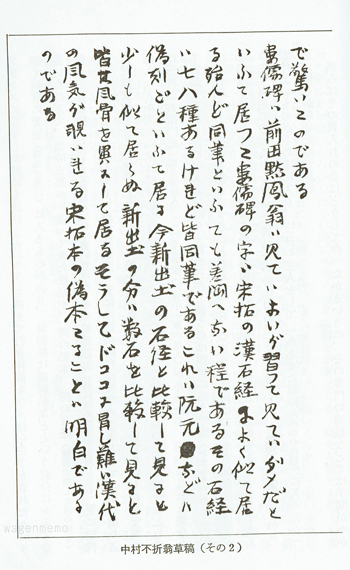 で驚いたのである
婁儔碑は前田黙鳳翁は見ていゝが習つて見てハダメだと
いふて居つた婁儔碑の字は宋拓の漢石経によく似て居
る殆んど同筆といふても差間へない程であるその石経
は七八種あるけれど皆同筆であるこれハ阮元などハ
偽刻だといふて居る今新出土の石経と比較して見ると
少しも似て居らぬ新出土の分は数石を比較して見ると
皆其風骨を異にして居るそうしてドコヽに冒し難い漢代
の風気が現はれる宋拓本の偽本たることは明白であるも
のである
中村不折翁草稿(その2)
wagenmemo